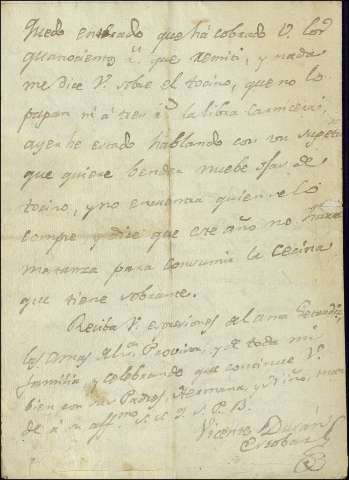 Quedo enterado que há cobrado V. los
quatrocientos r.s que remiti, y nada
me dice V. sobre el tocino, que no lo
pagan ni á tres r.s la libra carnicera,
ayer he estado hablando con un sugeto
que quiere bender nuebe @as de
tocino, y no encuentra quien se lo
compre y dice que este año no hará
matanza para consumir la cecina
que tiene sobrante.
Reciba V. expresiones del ama
las amas y de toda mi
familia y celebrando que continue V.
bien con sus Padres, Hermana, y Niño, man
de á su aff.mo S. S. Q. S. M. B.
Vicente Durán
Escobar